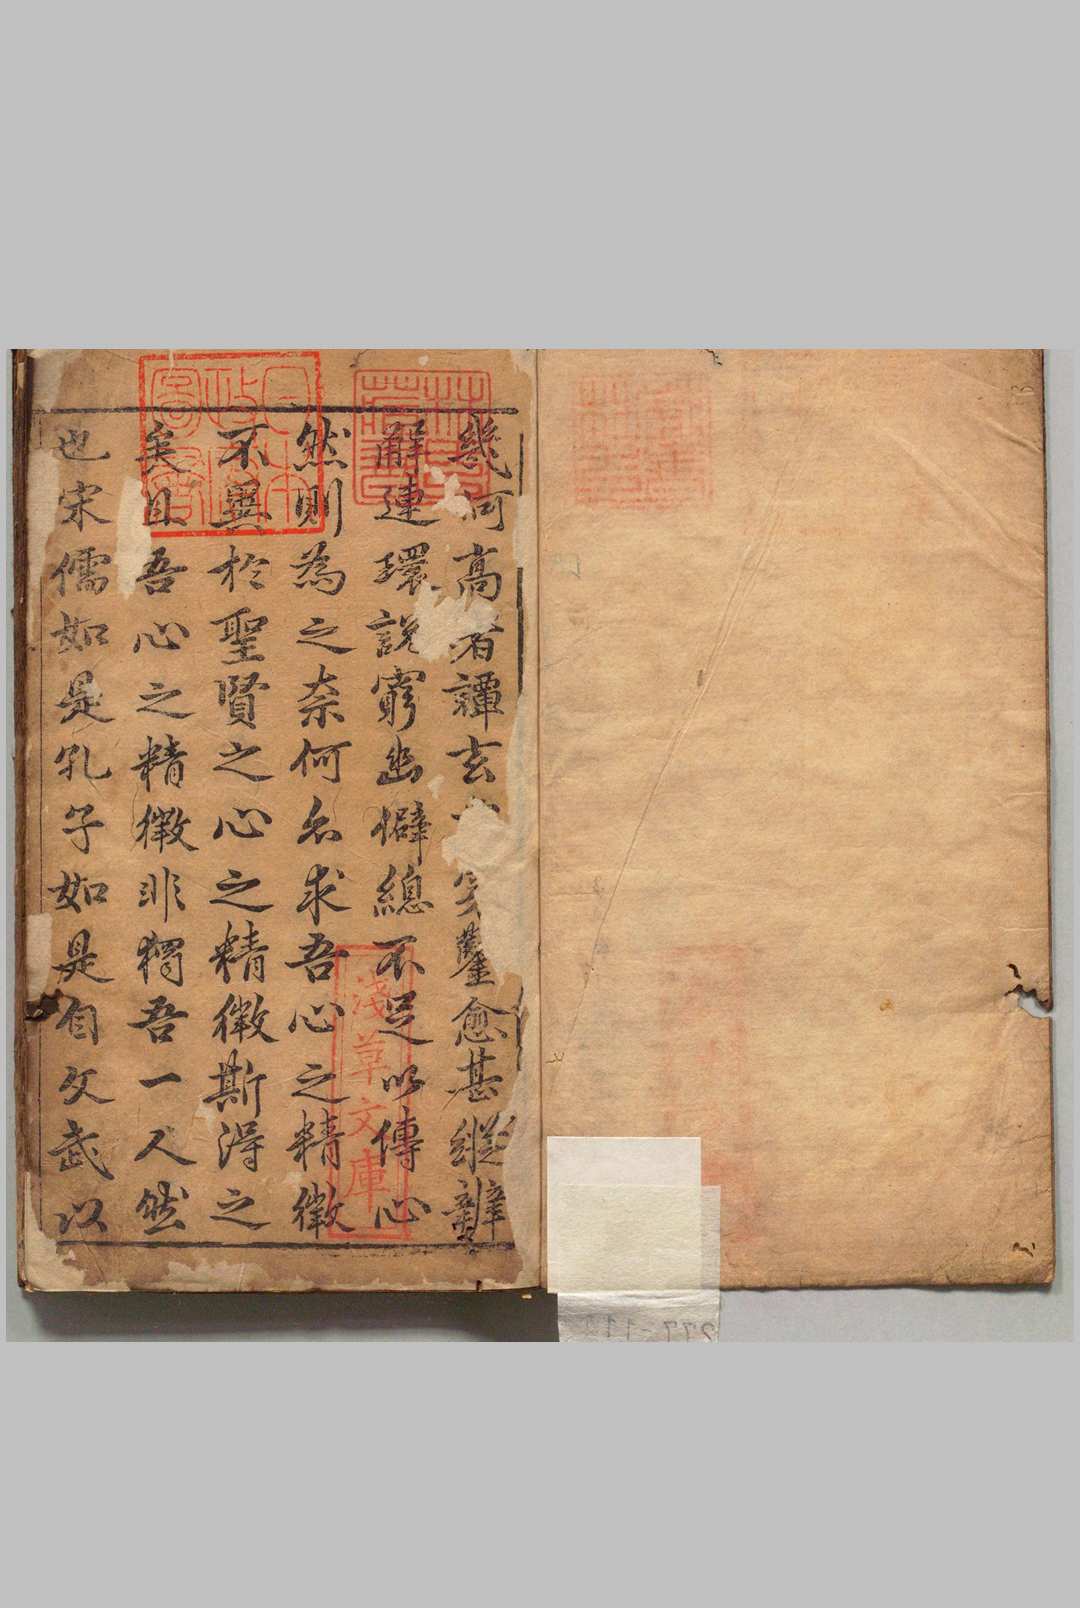 幾何高者譚玄穿鑿愈甚縱辯
解連環說窮幽僻總不足以傳心
然則為之奈何亦求吾心之精微
不異於聖賢之心之精微斯得之
矣且吾心之精微非獨吾一人然
也宋儒如是孔子如是自文武以
林氏藏書
日本政府圖書
淺草文庫